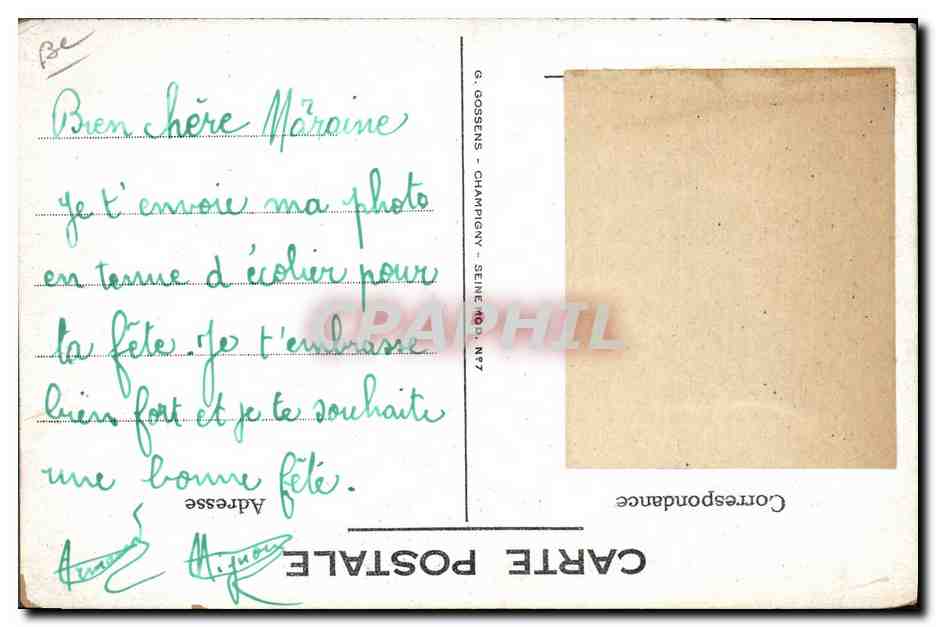 Be
Bien chère Maraine
je t'envoie ma photo
en tenue d'écolier pour
ta fête. Je t'embrasse
bien fort et je te souhaite
une bonne fête.
Mignon
G. GOSSENS - CHAMPIGNY - SEINE MOD. N°7
CPAPHIL
Correspondance
Adresse
CARTE POSTALE